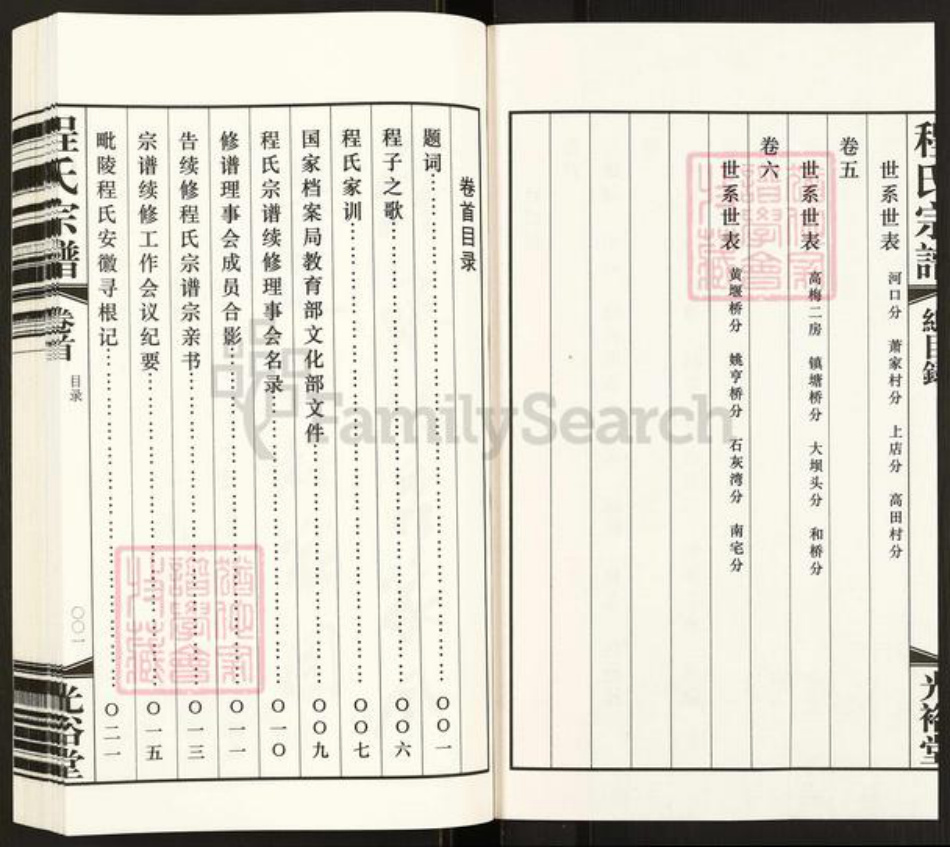 程氏宗譜
總目錄
光裕堂
世系世表 河口分 萧家村分 上店分 高田村分
卷五
世系世表 高梅二房 镇塘桥分 大坝头分 和桥分
卷六
世系世表 黄堰桥分 姚亨桥分 石灰湾分 南宅分
卷首目录
题词 〇〇一
程子之歌 〇〇六
程氏家训 〇〇七
国家档案局教育部文化部文件 〇〇九
程氏宗谱续修理事会名录 〇一〇
修谱理事会成员合影 〇一一
告续修程氏宗谱宗亲书 〇一三
宗谱续修工作会议纪要 〇一五
毗陵程氏安徽寻根记 〇二一
程氏宗譜
卷首
目录
〇〇一
光裕堂
FamilySearch